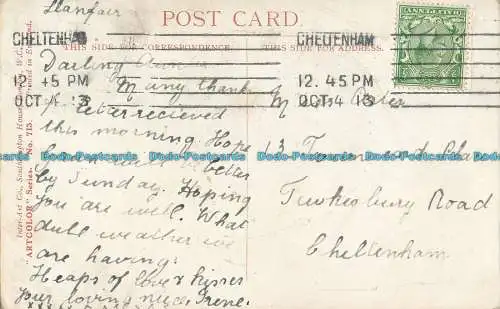 Llanfair
POST CARD.
THIS SIDE FOR CORRESPONDENCE.
THIS SIDE FOR ADDRESS.
CHELTENHAM
12.45 PM
OCT 4 13
CHELTENHAM
12.45 PM
OCT 4 13
Darling
Many thanks
letter recieved
this morning Hope
better
by Sunday. Hoping
you are well. What
dull weather we
are having.
Heaps of love & kisses
Your loving niece Irene.
Miss
13
Tewkesbury Road
Cheltenham
Inter-Art Co., Southampton House, W.C.
"ARTCOLOR" Series. No. 715.
Postcards Data-Postcards Data-Postcards Data-Postcards Data-Postcards